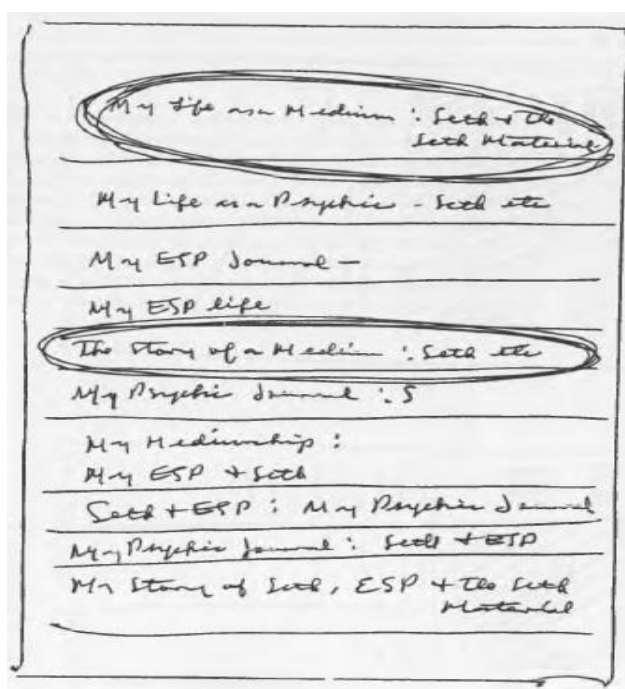 My Life as a Medium : Seth & the
Seth Material
My Life as a Psychic - Seth etc
My ESP Journal —
My ESP life
The Story of a Medium : Seth etc
My Psychic Journal : S
My Mediumship :
My ESP + Seth
Seth + ESP : My Psychic Journal
My Psychic Journal : Seth + ESP
My Story of Seth, ESP + the Seth
Material